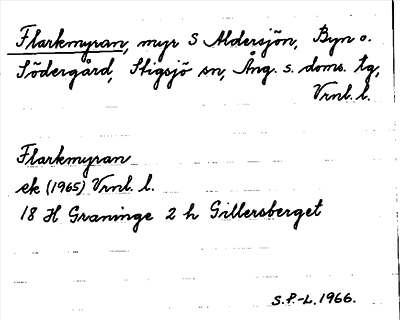 Flarkmyran, myr S Aldersjön, Byn o.
Södergård, Stigsjö sn, Ång. s. doms. tg,
Vrnl. l.
Flarkmyran
ek (1965) Vrnl. l.
18 H Graninge 2 h Gillersberget
S.P.-L. 1966.